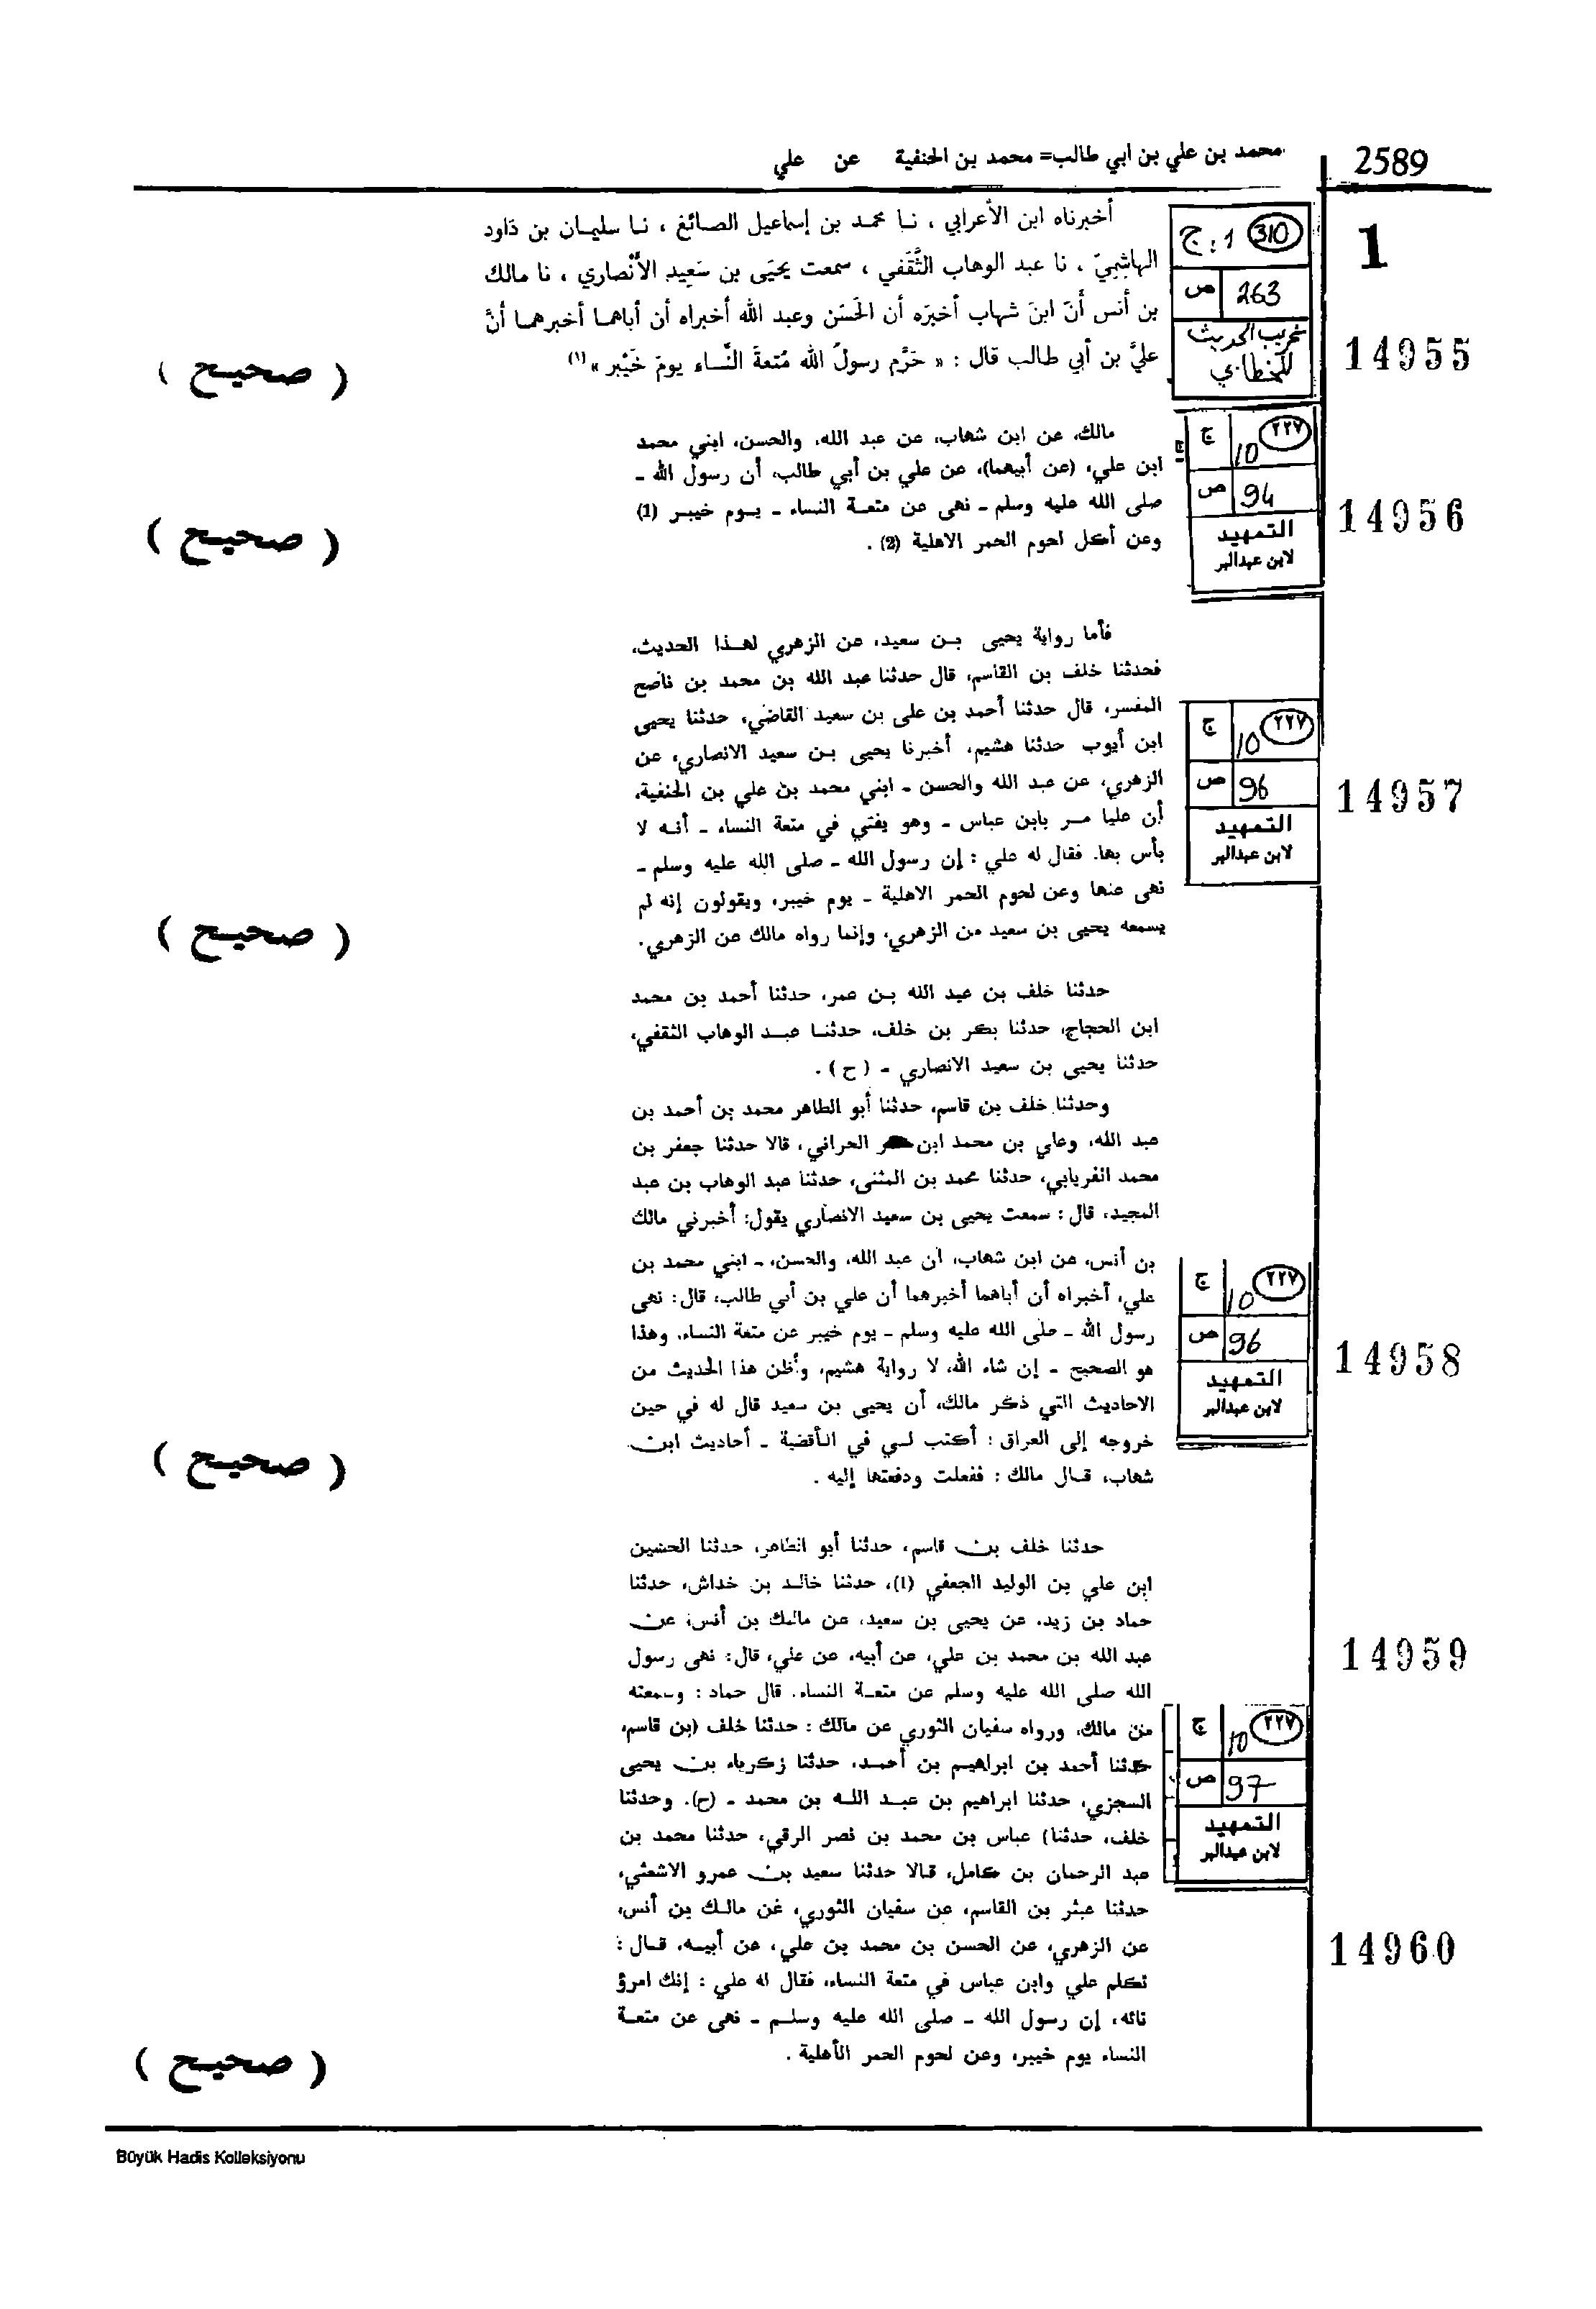 2589
محمد بن علي بن ابي طالب= محمد بن الحنفية عن علي
1
310 ج: 1
ص 263
غريب الحديث
للخطابي
14955
أخبرناه ابن الأعرابي ، نا محمد بن إسماعيل الصائغ ، نا سليمان بن دَاود
الهاشِمِيّ ، نا عبد الوهاب الثَّقَفي ، سمعت يحيَى بن سَعِيدِ الأنْصاري ، نا مالك
بن أَنس أنّ ابنَ شهاب أخبرَه أن الحَسَن وعبد الله أخبراه أن أباهما أخبرهما أنَّ
عليَّ بن أبي طالب قال : « حَرَّم رسولُ الله مُتعةَ النِّساء يومَ خَيْبر » (١)
( صحيح )
٢٢٧ ج 10
ص 94
التمهيد
لابن عبدالبر
14956
مالك، عن ابن شهاب، عن عبد الله، والحسن، ابني محمد
ابن علي، (عن أبيهما)، عن علي بن أبي طالب، أن رسول الله -
صلى الله عليه وسلم - نهى عن متعة النساء - يوم خيبر (1)
وعن أكل لحوم الحمر الاهلية (2) .
( صحيح )
فأما رواية يحيى بن سعيد، عن الزهري لهذا الحديث،
فحدثنا خلف بن القاسم، قال حدثنا عبد الله بن محمد بن ناصح
المفسر، قال حدثنا أحمد بن على بن سعيد القاضي، حدثنا يحيى
ابن أيوب حدثنا هشيم، أخبرنا يحيى بن سعيد الانصاري، عن
الزهري، عن عبد الله والحسن - ابني محمد بن علي بن الحنفية،
أن عليا مر بابن عباس - وهو يفتي في متعة النساء - أنه لا
بأس بها. فقال له علي : إن رسول الله - صلى الله عليه وسلم -
نهى عنها وعن لحوم الحمر الاهلية - يوم خيبر، ويقولون إنه لم
يسمعه يحيى بن سعيد من الزهري، وإنما رواه مالك عن الزهري.
٢٢٧ ج 10
ص 96
التمهيد
لابن عبدالبر
14957
( صحيح )
حدثنا خلف بن عبد الله بن عمر، حدثنا أحمد بن محمد
ابن الحجاج، حدثنا بكر بن خلف، حدثنا عبد الوهاب الثقفي،
حدثنا يحيى بن سعيد الانصاري - ( ح ) .
وحدثنا خلف بن قاسم، حدثنا أبو الطاهر محمد بن أحمد بن
عبد الله، وعلي بن محمد ابن الحراني، قالا حدثنا جعفر بن
محمد الفريابي، حدثنا محمد بن المثنى، حدثنا عبد الوهاب بن عبد
المجيد، قال : سمعت يحيى بن سعيد الانصاري يقول: أخبرني مالك
بن أنس، عن ابن شهاب، أن عبد الله، والحسن، - ابني محمد بن
علي، أخبراه أن أباهما أخبرهما أن علي بن أبي طالب، قال: نهى
رسول الله - صلى الله عليه وسلم - يوم خيبر عن متعة النساء. وهذا
هو الصحيح - إن شاء الله، لا رواية هشيم، وأظن هذا الحديث من
الاحاديث التي ذكر مالك، أن يحيى بن سعيد قال له في حين
خروجه إلى العراق : أكتب لي في الأقضية - أحاديث ابن
شهاب، قال مالك : ففعلت ودفعتها إليه .
٢٢٧ ج 10
ص 96
التمهيد
لابن عبدالبر
14958
( صحيح )
حدثنا خلف بن قاسم، حدثنا أبو الطاهر، حدثنا الحسين
ابن علي بن الوليد الجعفي (1)، حدثنا خالد بن خداش، حدثنا
حماد بن زيد، عن يحيى بن سعيد، عن مالك بن أنس، عن
عبد الله بن محمد بن علي، عن أبيه، عن علي، قال: نهى رسول
الله صلى الله عليه وسلم عن متعة النساء. قال حماد : وسمعته
من مالك، ورواه سفيان الثوري عن مالك : حدثنا خلف (بن قاسم،
حدثنا أحمد بن ابراهيم بن أحمد، حدثنا زكرياء بن يحيى
السجزي، حدثنا ابراهيم بن عبد الله بن محمد - (ح). وحدثنا
خلف، حدثنا) عباس بن محمد بن نصر الرقي، حدثنا محمد بن
عبد الرحمان بن كامل، قالا حدثنا سعيد بن عمرو الاشعثي،
حدثنا عبثر بن القاسم، عن سفيان الثوري، عن مالك بن أنس،
عن الزهري، عن الحسن بن محمد بن علي، عن أبيه، قال :
تكلم علي وابن عباس في متعة النساء، فقال له علي : إنك امرؤ
تائه، إن رسول الله - صلى الله عليه وسلم - نهى عن متعة
النساء يوم خيبر، وعن لحوم الحمر الأهلية .
14959
٢٢٧ ج 10
ص 97
التمهيد
لابن عبدالبر
14960
( صحيح )
Büyük Hadis Kolleksiyonu